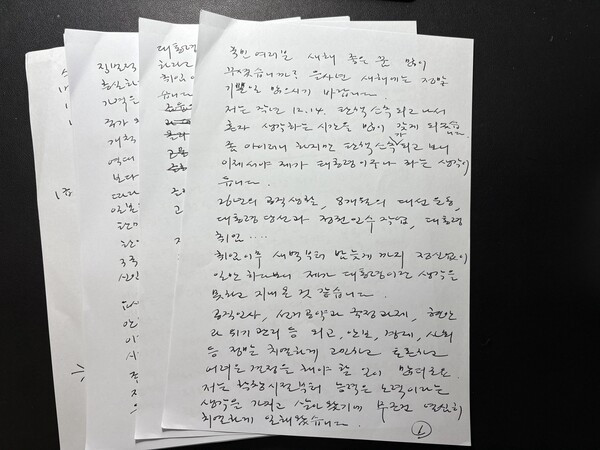 국민 여러분 새해 좋은 꿈 많이
꾸셨습니까? 을사년 새해에는 정말
기쁜 일 많으시기 바랍니다.
저는 작년 12.14. 탄핵소추되고 나서
혼자 생각하는 시간을 많이 갖게 되었습니다.
좀 아이러니 하지만 탄핵소추가 되고 보니
이제서야 제가 대통령이구나 하는 생각이
듭니다.
26년의 공직생활, 8개월의 대선 운동,
대통령 당선과 정권인수 작업, 대통령
취임....
취임이후 새벽부터 밤늦게까지 정신없이
일만 하다보니 제가 대통령이란 생각을
못하고 지내온 것 같습니다.
공직인사, 선거공약과 국정과제, 현안
과 위기관리 등 외교, 안보, 경제, 사회
등 정말 치열하게 고민하고 토론하고
어려운 결정을 해야 할 일이 많더군요.
저는 학창시절부터 능력은 노력이라는
생각을 가지고 살아왔기에 무조건 열심히
치열하게 일해왔습니다.
①
대통령
하라고
취임
습니다